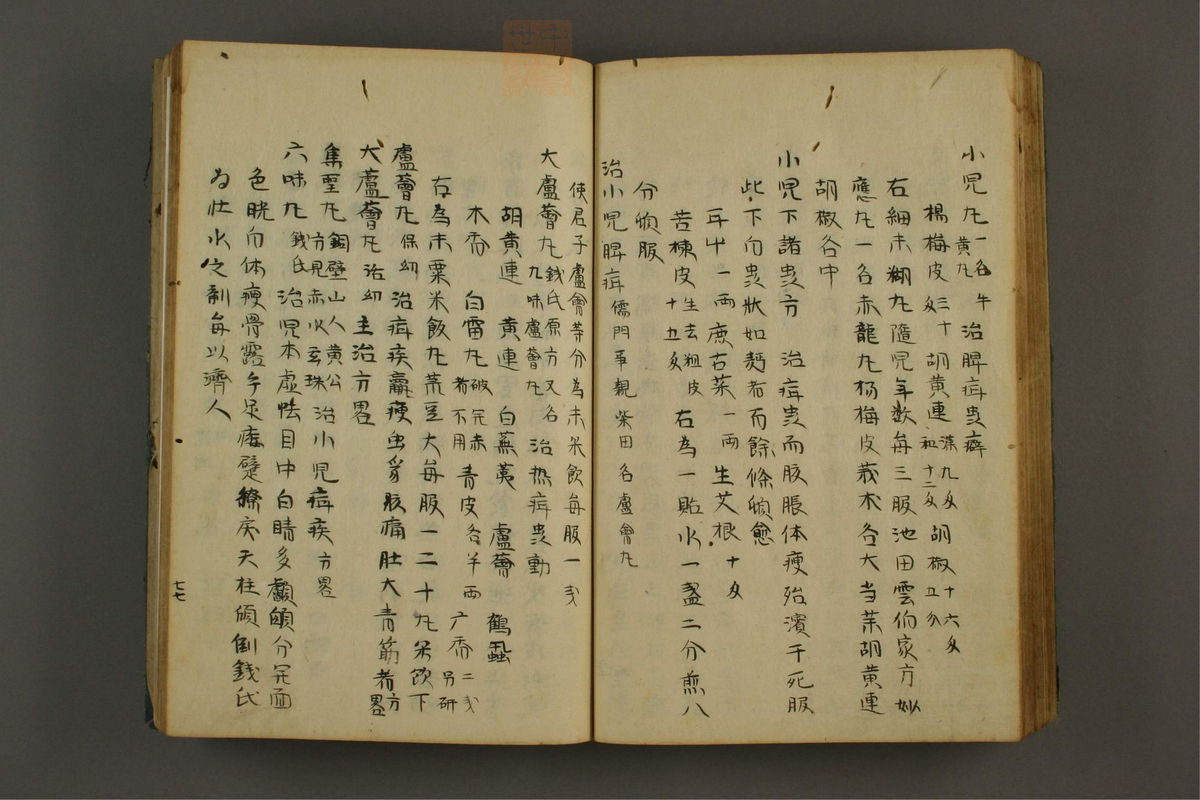 小児丸一名黄丸 牛 治脾疳虫癖
楊梅皮三十匁 胡黄連 深九匁 和十二匁 胡椒十六匁五分
右細末糊丸隨児年数毎三服池田雲伯家方妙
應丸一名赤龍丸杨梅皮莪朮各大当茉胡黄連
胡椒各中
小児下諸虫方 治疳虫而腹脹体痩殆濱于死服
此下白虫状如麪者而餘條頓愈
耳中一両 鹿古菜一両 生艾根十匁
苦楝皮生去粗皮十五匁 右為一貼水一盞二分煎八
分頓服
治小児脾疳儒門事親柴田名盧會丸
使君子盧會等分為末米飲毎服一戔
大盧薈丸銭氏原方又名九味盧薈丸 治热疳虫動
胡黄連 黄連 白蕪荑 盧薈 鶴虱
木香 白雷丸破完赤者不用 青皮各半両 广香二戔另研
右為末粟米飯丸菉豆大毎服一二十丸米飲下
盧薈丸保幼 治疳疾羸痩虫脹痛肚大青筋者方畧
大蘆薈丸治幼 主治方畧
集聖丸銅壁山人黄公方見赤水玄珠 治小児疳疾方畧
六味丸銭氏 治児本虚怯目中白睛多顱䪿分開面
色㿠白体痩骨露手足痿躄繚戻天柱傾倒銭氏
為壮水之剤毎以濟人
七七